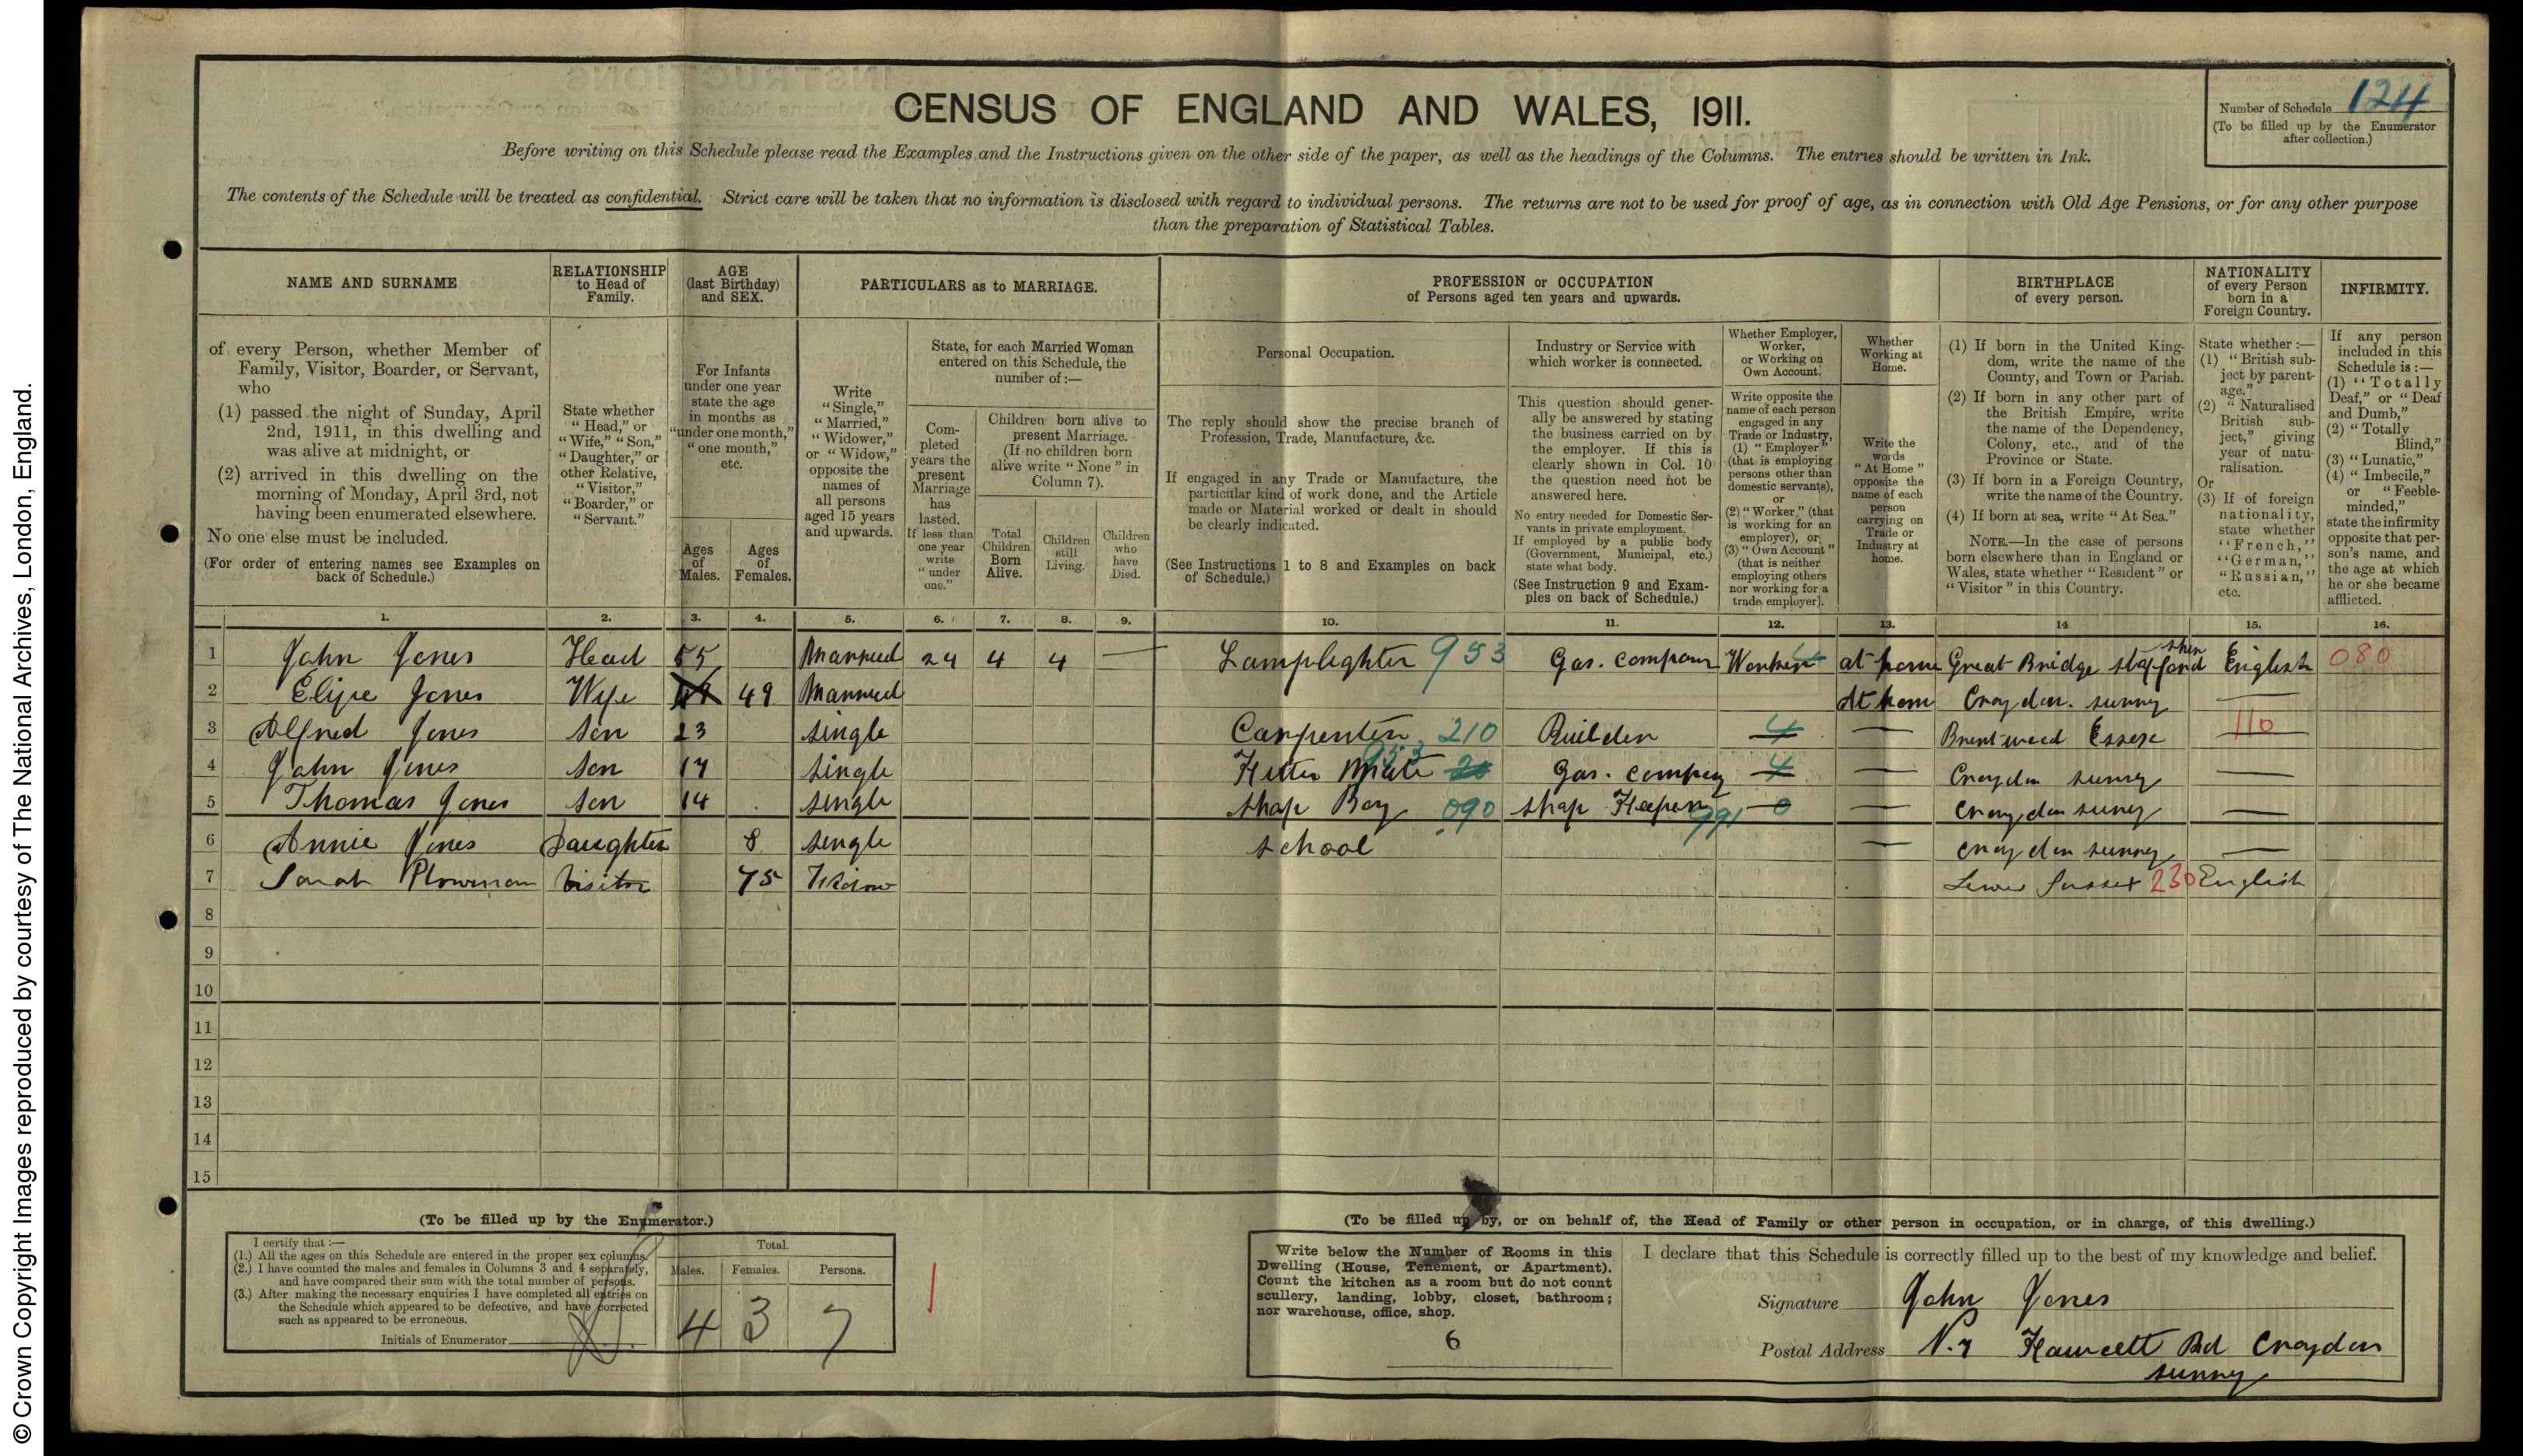 © Crown Copyright Images reproduced by courtesy of The National Archives, London, England.
CENSUS OF ENGLAND AND WALES, 1911.
Number of Schedule 124
(To be filled up by the Enumerator after collection.)
Before writing on this Schedule please read the Examples and the Instructions given on the other side of the paper, as well as the headings of the Columns. The entries should be written in Ink.
The contents of the Schedule will be treated as confidential. Strict care will be taken that no information is disclosed with regard to individual persons. The returns are not to be used for proof of age, as in connection with Old Age Pensions, or for any other purpose
than the preparation of Statistical Tables.
NAME AND SURNAME
of every Person, whether Member of
Family, Visitor, Boarder, or Servant,
who
(1) passed the night of Sunday, April
2nd, 1911, in this dwelling and
was alive at midnight, or
(2) arrived in this dwelling on the
morning of Monday, April 3rd, not
having been enumerated elsewhere.
No one else must be included.
(For order of entering names see Examples on
back of Schedule.)
RELATIONSHIP
to Head of
Family.
State whether
"Head," or
"Wife," "Son,"
"Daughter," or
other Relative,
"Visitor,"
"Boarder," or
"Servant."
AGE
(last Birthday)
and SEX.
For Infants
under one year
state the age
in months as
"under one month,"
"one month,"
etc.
Ages
of
Males.
Ages
of
Females.
PARTICULARS as to MARRIAGE.
Write
"Single,"
"Married,"
"Widower,"
or "Widow,"
opposite the
names of
all persons
aged 15 years
and upwards.
State, for each Married Woman
entered on this Schedule, the
number of:—
Com-
pleted
years the
present
Marriage
has
lasted.
If less than
one year
write
"under
one."
Children born alive to
present Marriage.
(If no children born
alive write "None" in
Column 7).
Total
Children
Born
Alive.
Children
still
Living.
Children
who
have
Died.
PROFESSION or OCCUPATION
of Persons aged ten years and upwards.
Personal Occupation.
The reply should show the precise branch of
Profession, Trade, Manufacture, &c.
If engaged in any Trade or Manufacture, the
particular kind of work done, and the Article
made or Material worked or dealt in should
be clearly indicated.
(See Instructions 1 to 8 and Examples on back
of Schedule.)
Industry or Service with
which worker is connected.
This question should gener-
ally be answered by stating
the business carried on by
the employer. If this is
clearly shown in Col. 10
the question need not be
answered here.
No entry needed for Domestic Ser-
vants in private employment.
If employed by a public body
(Government, Municipal, etc.)
state what body.
(See Instruction 9 and Exam-
ples on back of Schedule.)
Whether Employer,
Worker,
or Working on
Own Account.
Write opposite the
name of each person
engaged in any
Trade or Industry,
(1) "Employer"
(that is employing
persons other than
domestic servants),
or
(2) "Worker" (that
is working for an
employer), or
(3) "Own Account"
(that is neither
employing others
nor working for a
trade employer).
Whether
Working at
Home.
Write the
words
"At Home"
opposite the
name of each
person
carrying on
Trade or
Industry at
home.
BIRTHPLACE
of every person.
(1) If born in the United King-
dom, write the name of the
County, and Town or Parish.
(2) If born in any other part of
the British Empire, write
the name of the Dependency,
Colony, etc., and of the
Province or State.
(3) If born in a Foreign Country,
write the name of the Country.
(4) If born at sea, write "At Sea."
NOTE.—In the case of persons
born elsewhere than in England or
Wales, state whether "Resident" or
"Visitor" in this Country.
NATIONALITY
of every Person
born in a
Foreign Country.
State whether:—
(1) "British sub-
ject by parent-
age."
(2) "Naturalised
British sub-
ject," giving
year of natu-
ralisation.
Or
(3) If of foreign
nationality,
state whether
"French,"
"German,"
"Russian,"
etc.
INFIRMITY.
If any person
included in this
Schedule is:—
(1) "Totally
Deaf," or "Deaf
and Dumb,"
(2) "Totally
Blind,"
(3) "Lunatic,"
(4) "Imbecile,"
or "Feeble-
minded,"
state the infirmity
opposite that per-
son's name, and
the age at which
he or she became
afflicted.
1. 2. 3. 4. 5. 6. 7. 8. 9. 10. 11. 12. 13. 14 15. 16.
1 John Jones Head 55 Married 24 4 4 — Lamplighter 953 Gas. Worker at home Great Bridge Stafford shire English 080
2 Jones Wife 49 Married At hom Croydon. surrey —
3 Alfred Jones son 23 single Carpenter 210 Builder 4 — Brentwood Essex 110
4 John Jones son single Mate 953 Gas. company 4 — Croydon surrey —
5 Thomas Jones son 14 single shop Boy 090 shop Keeper 991 0 — Croydon surrey —
6 Annie Jones Daughter 8 single school — croydon surrey —
7 Sarah Plowman Visitor 75 Widow Lewes Sussex 230 English
8
9
10
11
12
13
14
15
(To be filled up by the Enumerator.)
I certify that:—
(1.) All the ages on this Schedule are entered in the proper sex columns.
(2.) I have counted the males and females in Columns 3 and 4 separately,
and have compared their sum with the total number of persons.
(3.) After making the necessary enquiries I have completed all entries on
the Schedule which appeared to be defective, and have corrected
such as appeared to be erroneous.
Initials of Enumerator
Total.
Males. Females. Persons.
4 3 7
(To be filled up by, or on behalf of, the Head of Family or other person in occupation, or in charge, of this dwelling.)
Write below the Number of Rooms in this
Dwelling (House, Tenement, or Apartment).
Count the kitchen as a room but do not count
scullery, landing, lobby, closet, bathroom;
nor warehouse, office, shop.
6
I declare that this Schedule is correctly filled up to the best of my knowledge and belief.
Signature John Jones
Postal Address N. 7 Fawcett Rd Croydon
surrey